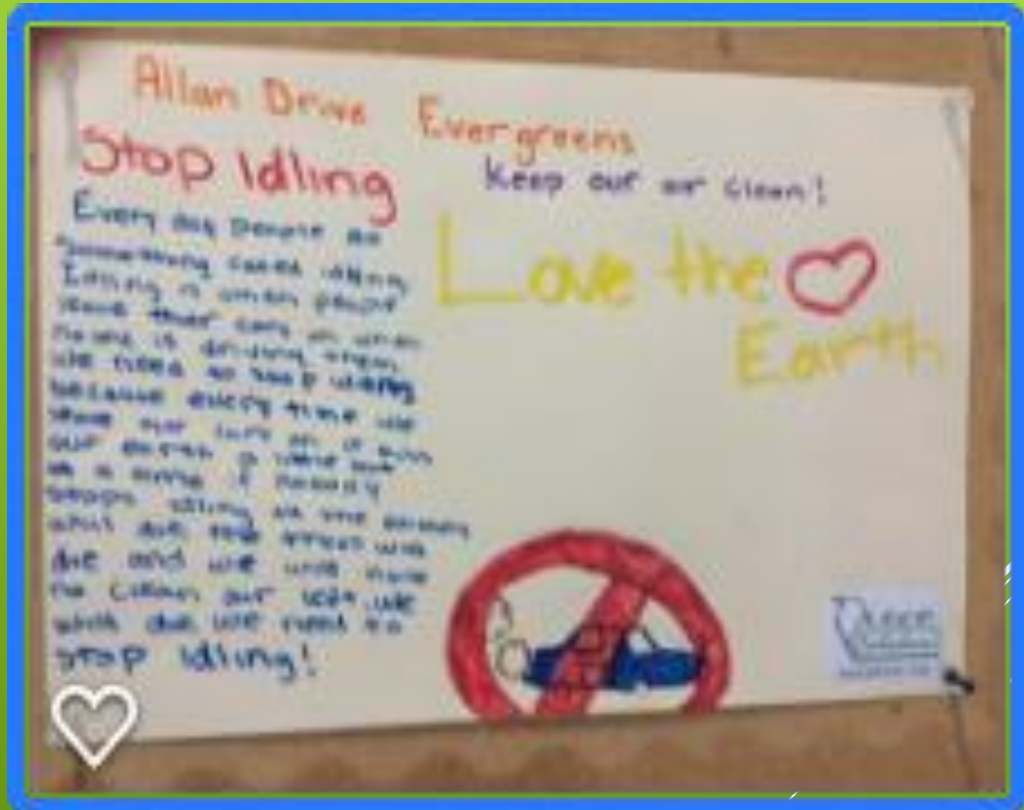 Allan Drive Evergreens
Stop Idling
Keep our air clean!
Love the
Earth
Every day people do
something called idling
Idling is when people
leave their cars on when
no one is driving them
We need to stop idleing
because every time we
leave our cars on it kills
our earth a little bit
at a time if nobody
stops idling all the animals
will die the trees will
die and we will have
no clean air left. We
will die we need to
stop idling!